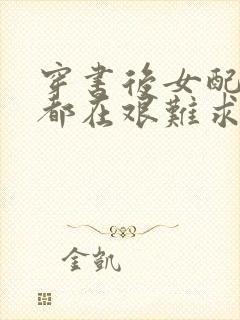 穿書後女配
都在艱難求
金凱